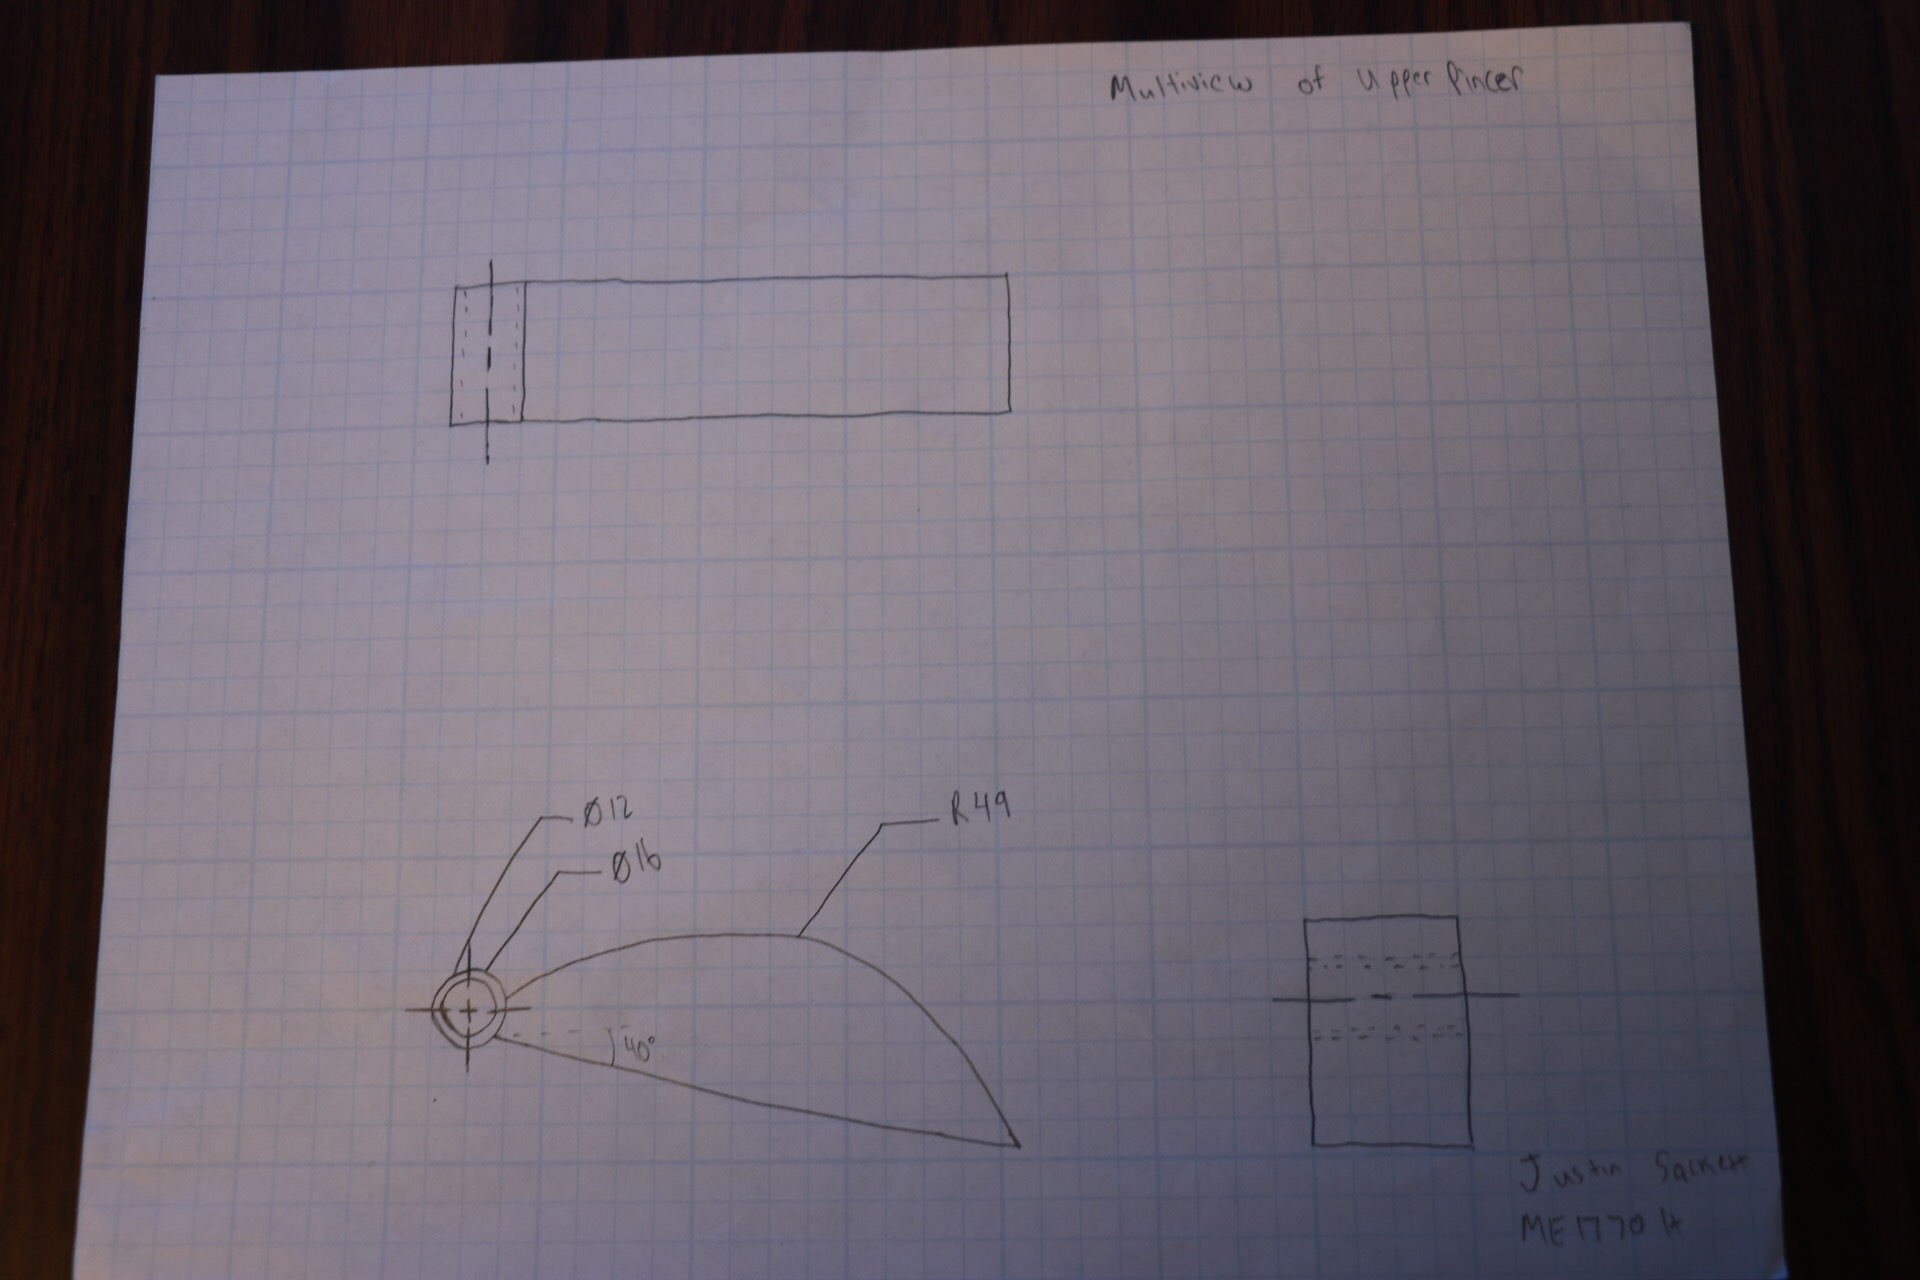 Multiview of Upper Pincer
Ø12
Ø16
R49
40°
Justin Sackett
ME1770 H